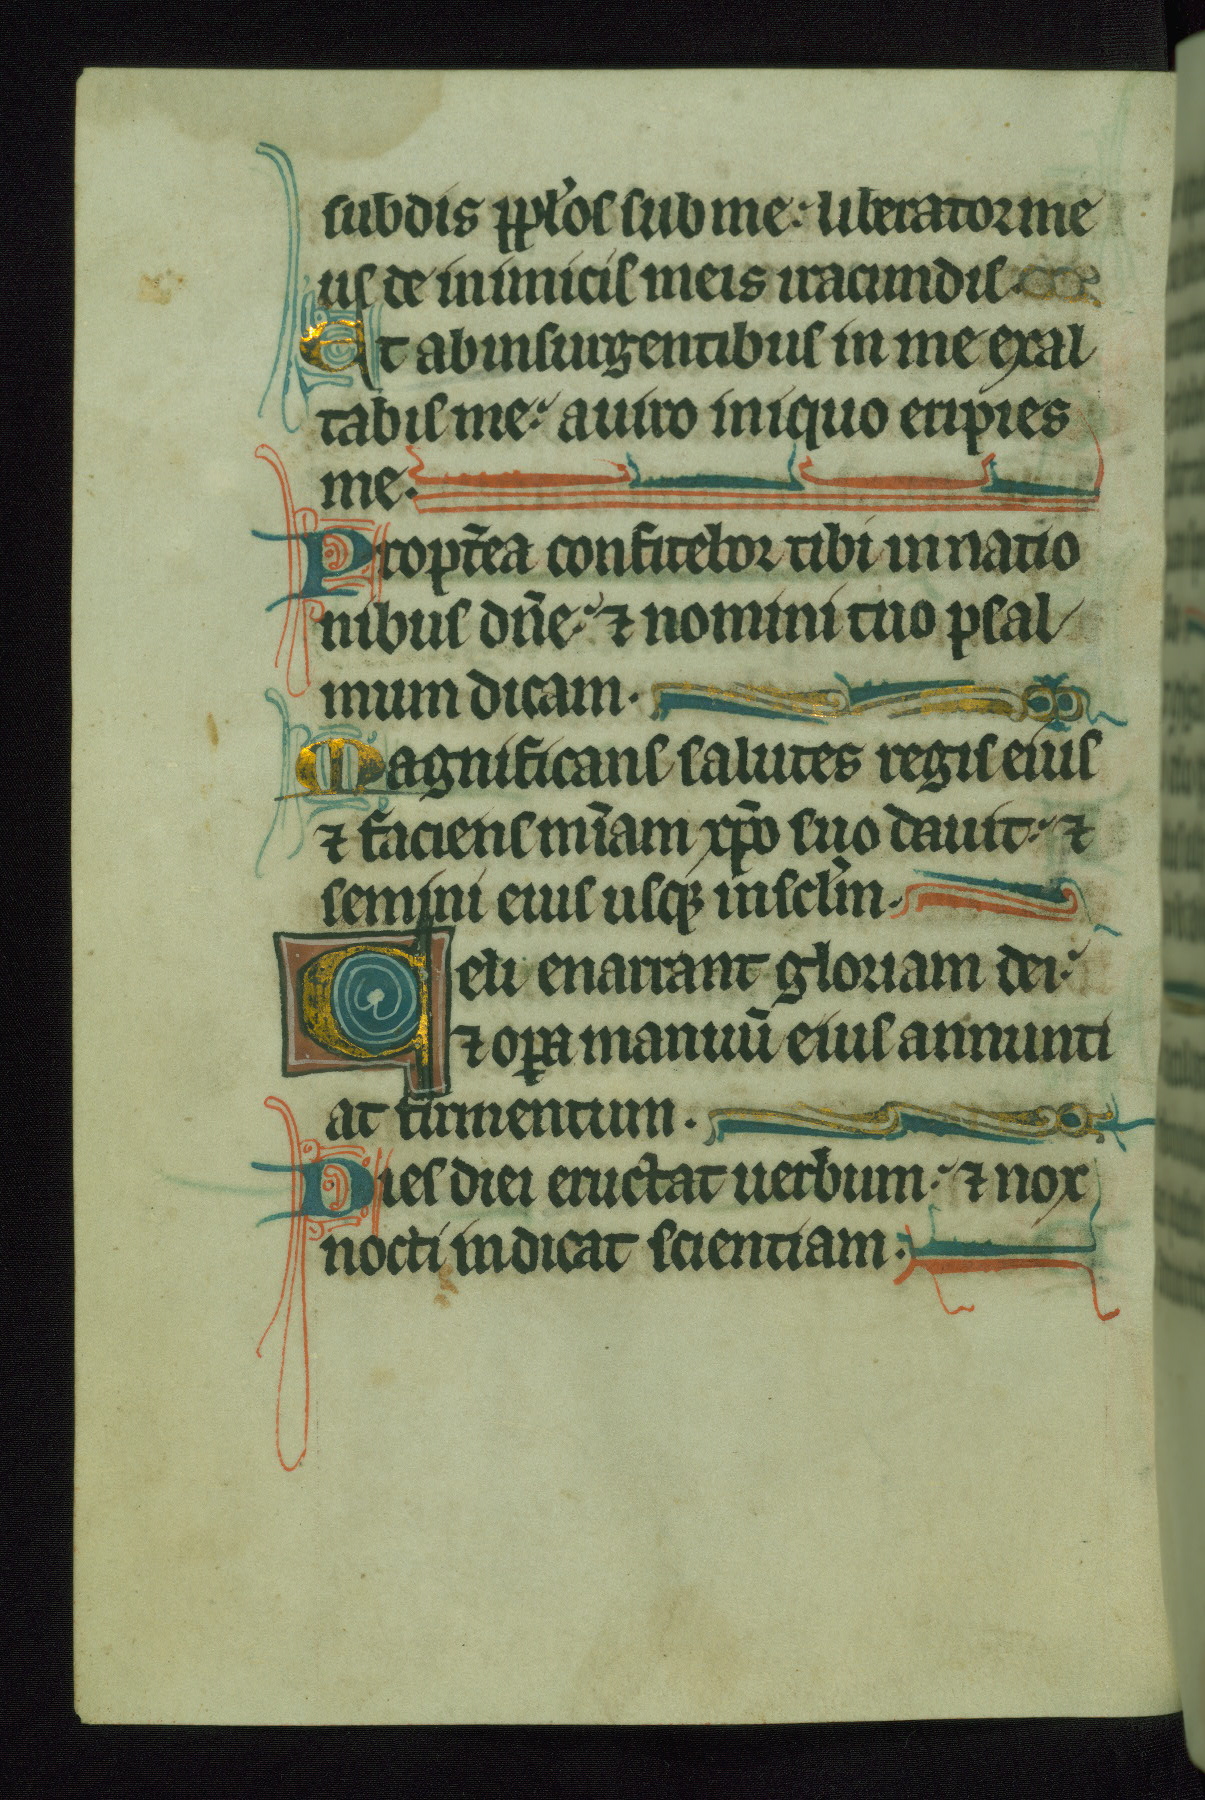 subdis pp̃l'os sub me: liberator me
us de inimicis meis iracundis.
Et ab insurgentibus in me exal
tabis me: a uiro iniquo eripies
me.
Propt̃ea confitebor tibi in natio
nibus dn̄e: ⁊ nomini tuo psal
mum dicam.
Magnificans salutes regis eius
⁊ faciens mĩam xp̃o suo dauit: ⁊
semini eius usq; in sclm̃.
Celi enarrant gloriam dei:
⁊ oꝑa manuū eius annunti
at firmentum.
Dies diei eructat uerbum: ⁊ nox
nocti indicat scientiam.